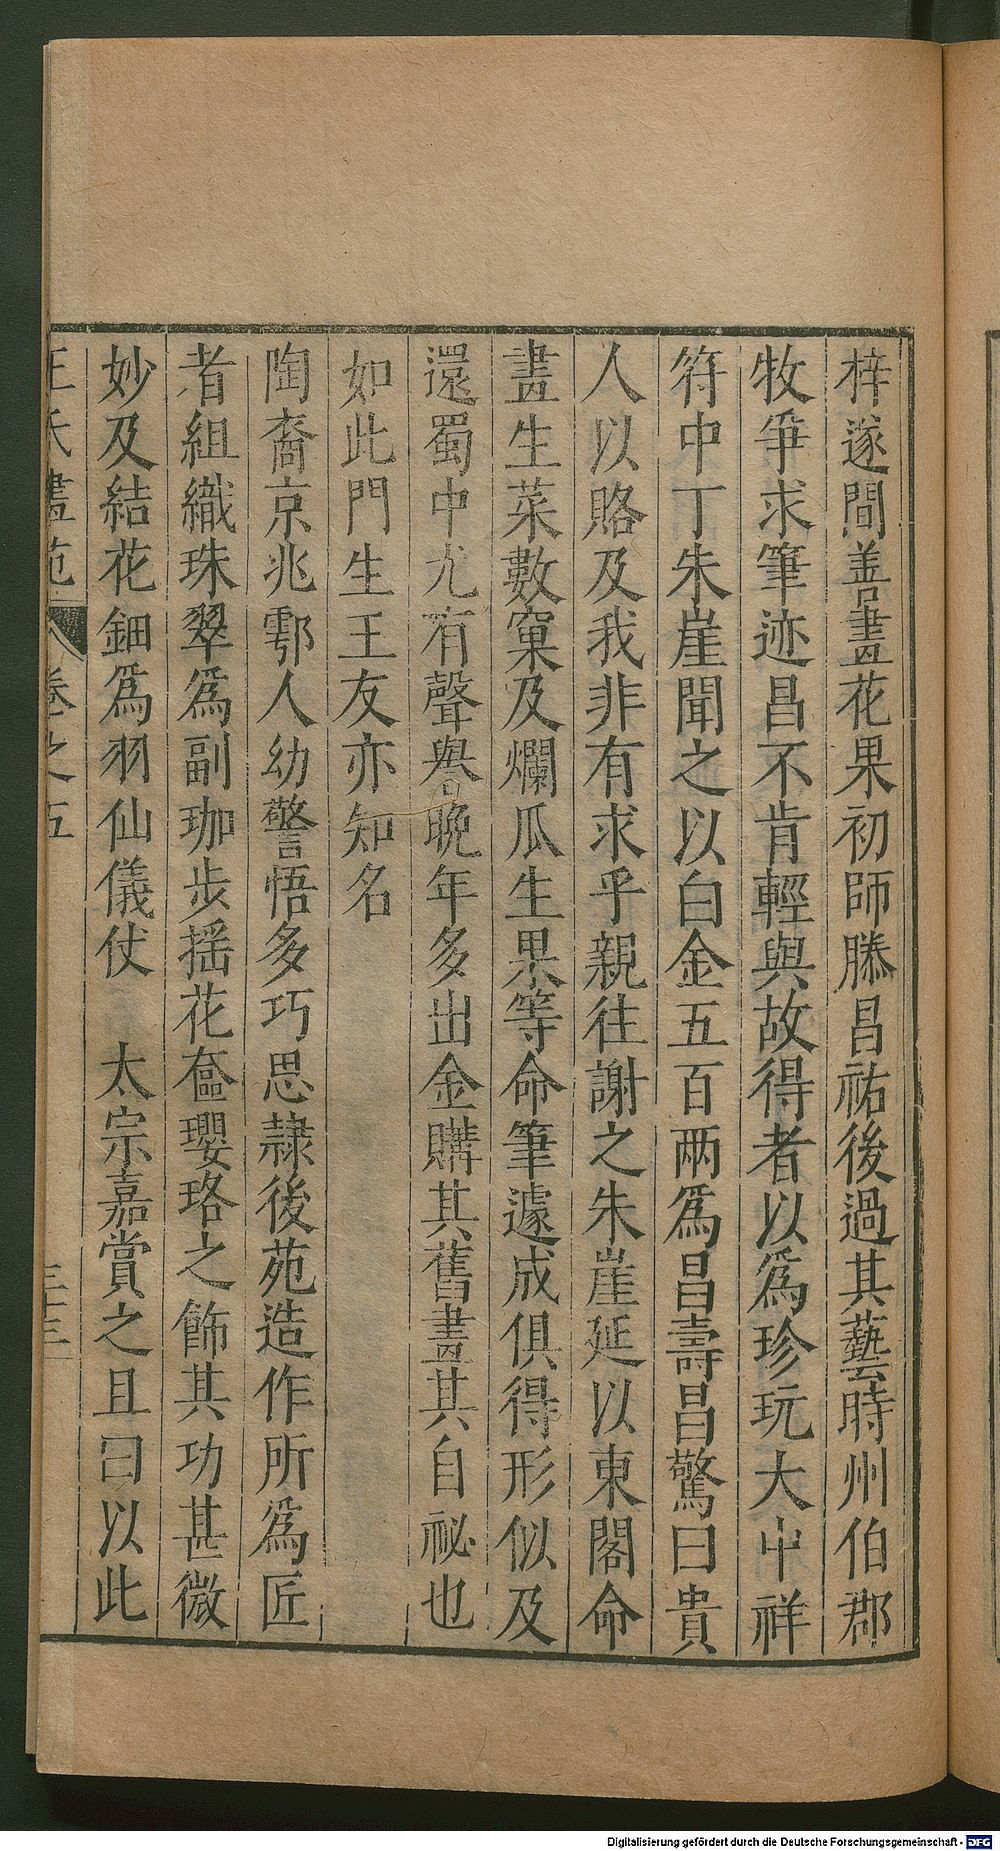 梓遂間善畫花果初師滕昌祐後過其藝時州伯郡
牧爭求筆迹昌不肯輕與故得者以爲珍玩大中祥
符中丁朱崖聞之以白金五百兩爲昌壽昌驚曰貴
人以賂及我非有求乎親往謝之朱崖延以東閣命
畫生菜數窠及爛瓜生果等命筆遽成俱得形似及
還蜀中尤有聲譽晚年多出金購其舊畫其自祕也
如此門生王友亦知名
陶裔京兆鄠人幼警悟多巧思隷後苑造作所爲匠
者組織珠翠爲副珈步摇花奩瓔珞之飾其功甚微
妙及結花鈿爲羽仙儀仗　太宗嘉賞之且曰以此
王氏畫苑 卷之五 三十三
Digitalisierung gefördert durch die Deutsche Forschungsgemeinschaft - DFG